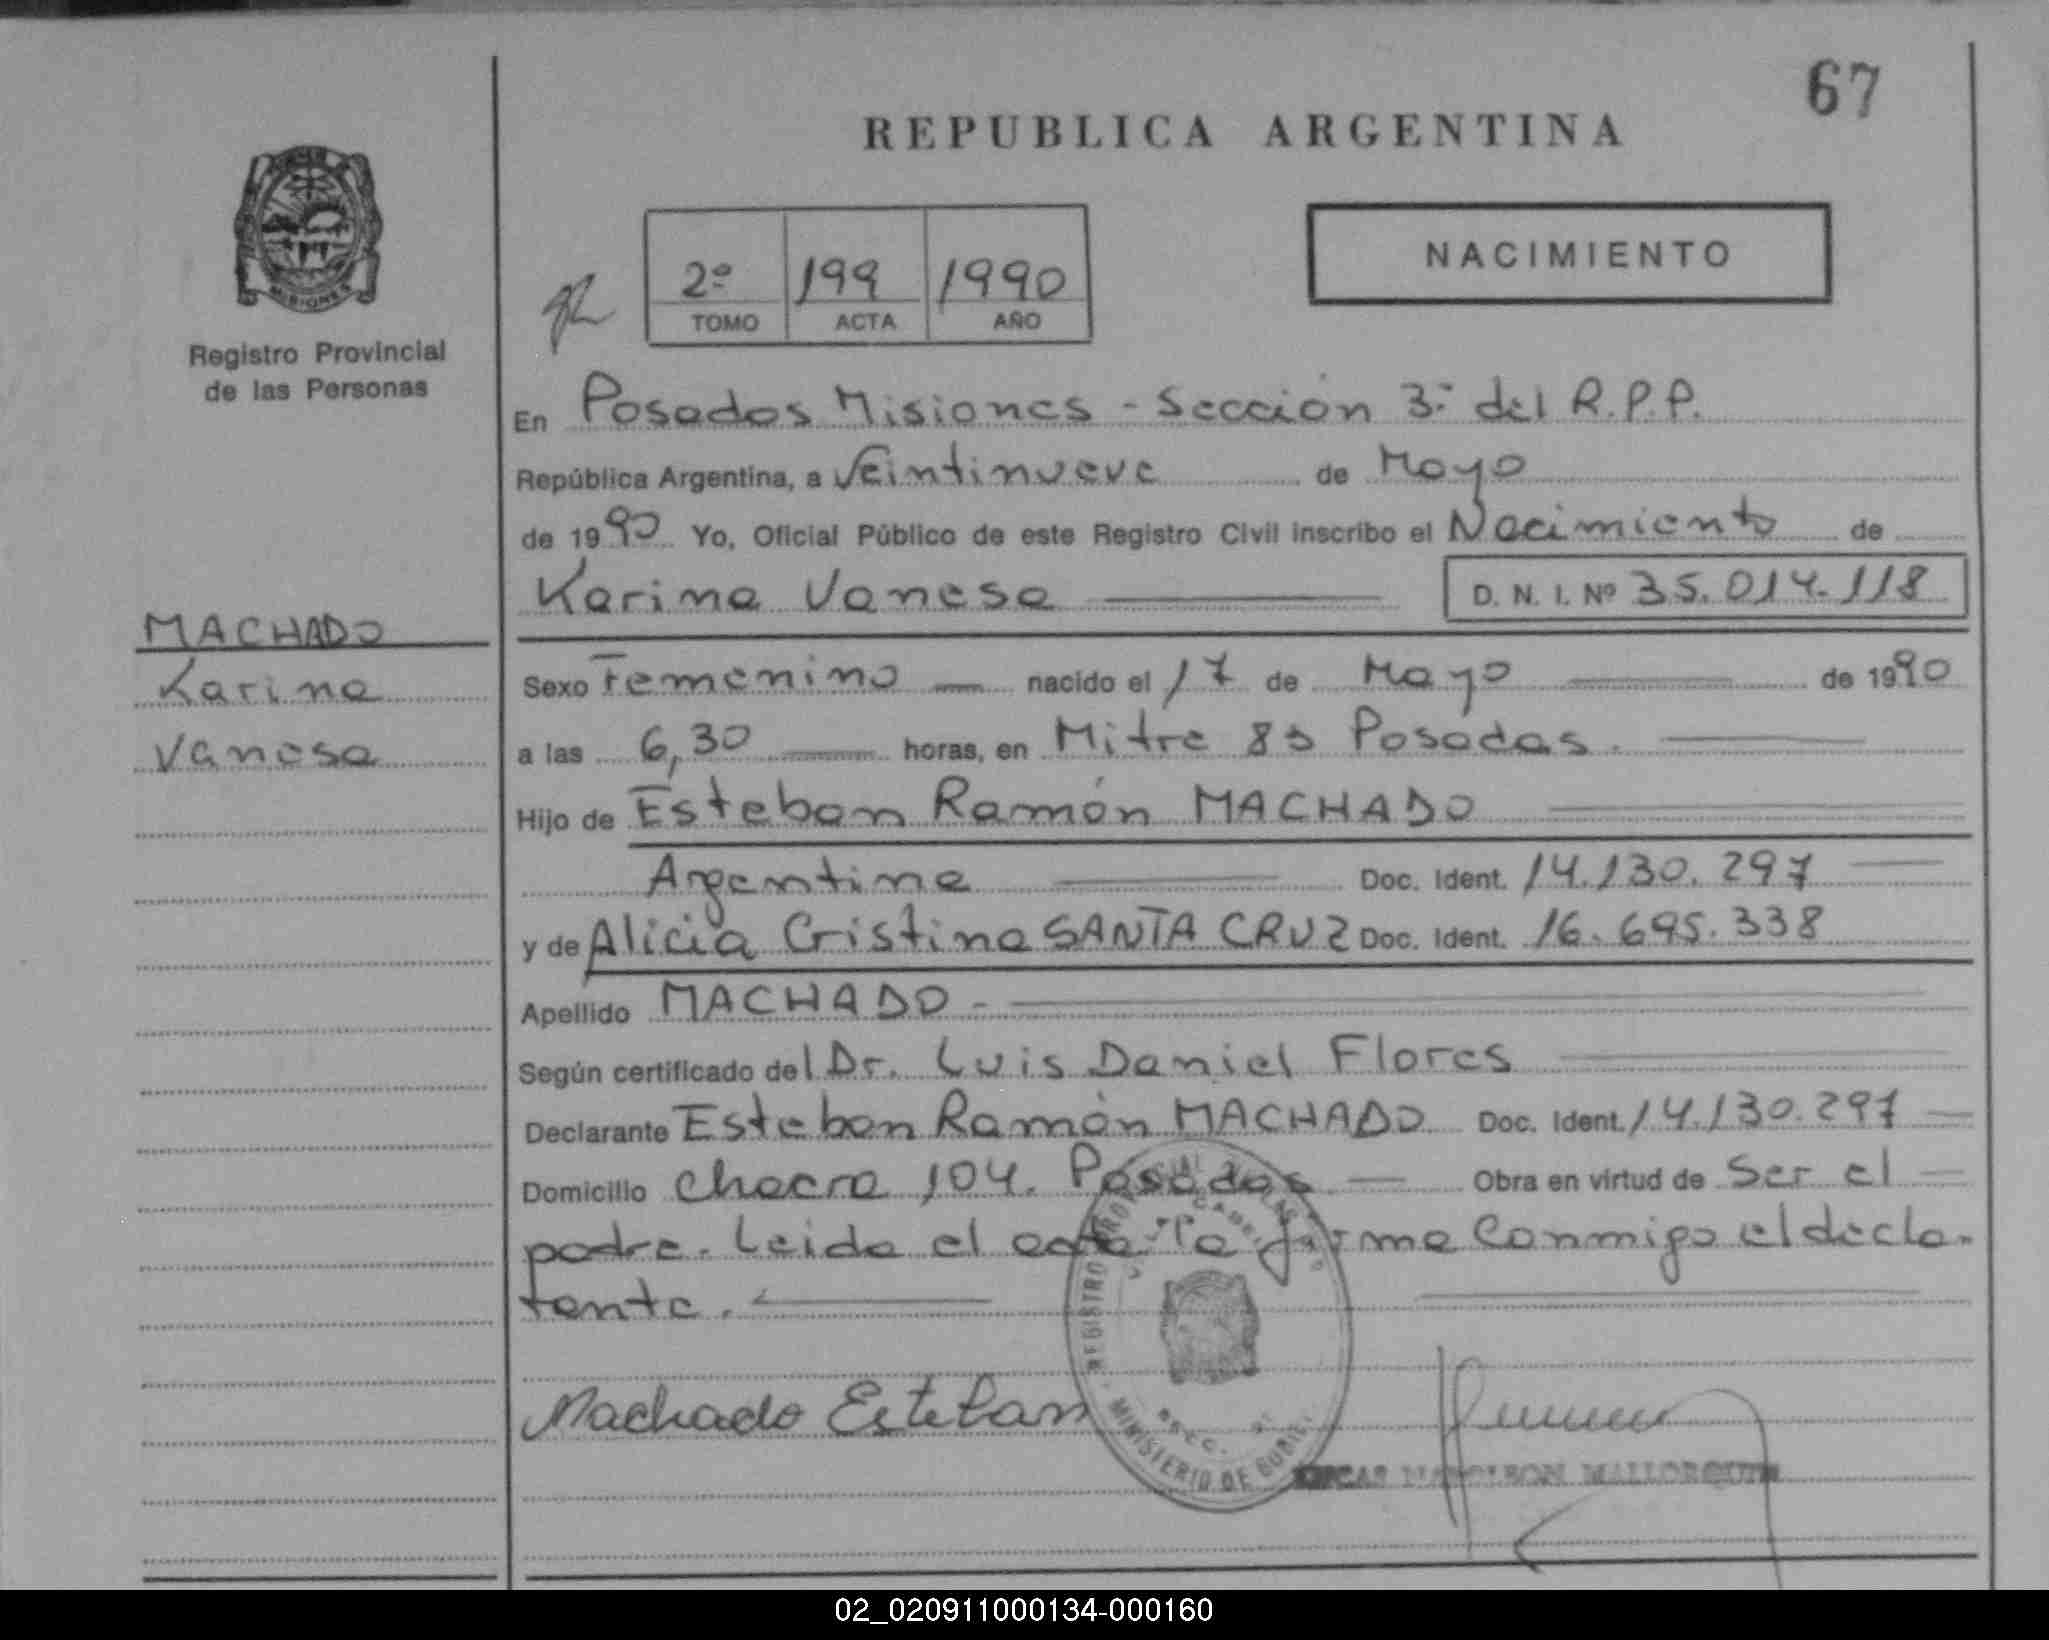 67
REPUBLICA ARGENTINA
NACIMIENTO
2º 199 1990
TOMO ACTA AÑO
MISIONES
Registro Provincial
de las Personas
En Posadas Misiones - Sección 3ª del R.P.P.
República Argentina, a Veintinueve de Mayo
de 1990 Yo, Oficial Público de este Registro Civil inscribo el Nacimiento de
Karina Vanesa D. N. I. Nº 35.014.118
MACHADO
Karina
Vanesa
Sexo Femenino nacido el 17 de Mayo de 1990
a las 6,30 horas, en Mitre 83 Posadas.
Hijo de Esteban Ramón MACHADO
Argentina Doc. Ident. 14.130.297
y de Alicia Cristina SANTA CRUZ Doc. Ident. 16.695.338
Apellido MACHADO -
Según certificado del Dr. Luis Daniel Flores
Declarante Esteban Ramón MACHADO Doc. Ident. 14.130.297
Domicilio Chacra 104. Posadas Obra en virtud de Ser el
padre. Leida el acta la firma Conmigo el decla-
rante.
Machado Esteban
REGISTRO PROVINCIAL DE LAS
MINISTERIO DE GOB
SECC.
NAPOLEON MALLORQUIN
02_020911000134-000160